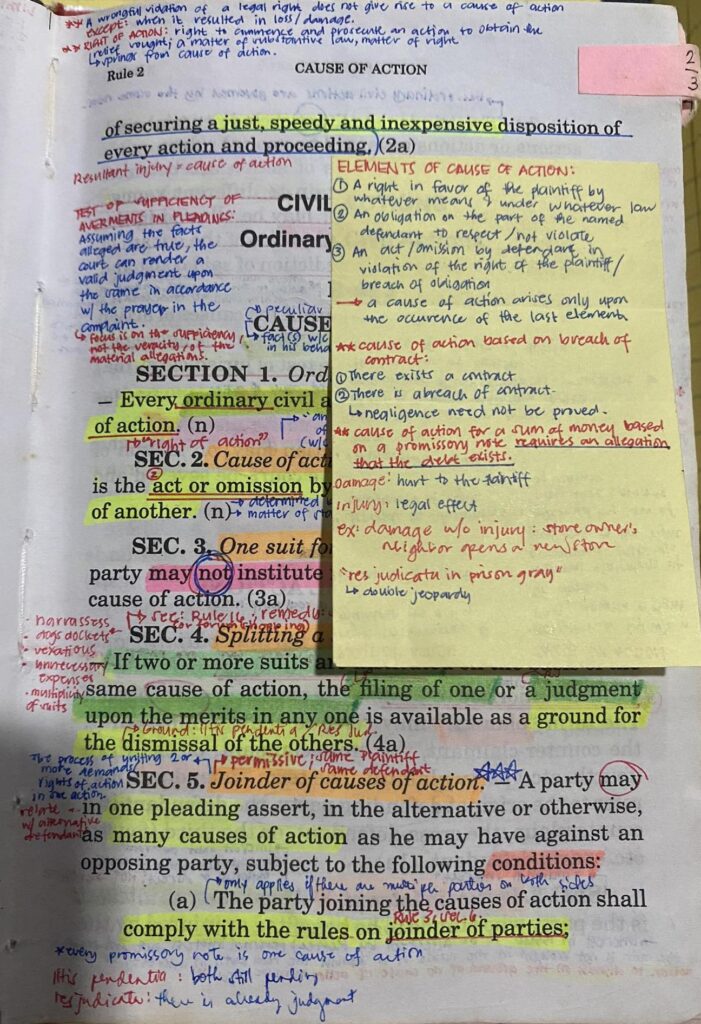 ** A wrongful violation of a legal right does not give rise to a cause of action
EXCEPT: when it resulted in loss/damage.
** RIGHT OF ACTION: right to commence and prosecute an action to obtain the
relief sought; a matter of substantive law, matter of right
↳ springs from cause of action.
Rule 2
CAUSE OF ACTION
2
3
of securing a just, speedy and inexpensive disposition of
every action and proceeding. (2a)
Resultant injury = cause of action
TEST OF SUFFICIENCY OF
AVERMENTS IN PLEADINGS:
Assuming the facts
alleged are true, the
court can render a
valid judgment upon
the same in accordance
w/ the prayer in the
complaint.
↳ focus is on the sufficiency,
not the veracity, of the
material allegations.
CIVIL
Ordinary
↱ peculiar
CAUSE
↳ fact(s) w/c
in his beha
SECTION 1. Ord
– Every ordinary civil a
of action. (n)
↳ "right of action"
SEC. 2. Cause of acti
is the act or omission by
of another. (n)
→ determined
→ matter of
SEC. 3. One suit for
party may not institute
cause of action. (3a)
↱ see: Rule 16; remedy:
for forum shopping)
SEC. 4. Splitting a
- harrassess
- clogs dockets
- vexatious
- unnecessary
expenses
- multiplicity
of suits
If two or more suits ar
same cause of action, the filing of one or a judgment
upon the merits in any one is available as a ground for
↳ Ground: litis pendentia - Res Jud.
the dismissal of the others. (4a)
The process of uniting 2 or
more demands/
rights of action
in one action
relate -
w/ alternative
defendant
↱ permissive; same plaintiff
same defendant
SEC. 5. Joinder of causes of action. – A party may
in one pleading assert, in the alternative or otherwise,
as many causes of action as he may have against an
opposing party, subject to the following conditions:
↱ only applies if there are multiple parties on both sides
(a) The party joining the causes of action shall
Rule 3, Sec. 6
comply with the rules on joinder of parties;
*every promissory note is one cause of action
litis pendentia : both still pending
res judicata : there is already judgment
ELEMENTS OF CAUSE OF ACTION:
① A right in favor of the plaintiff by
whatever means & under whatever law
② An obligation on the part of the named
defendant to respect / not violate
③ An act/omission by defendant in
violation of the right of the plaintiff/
breach of obligation
→ a cause of action arises only upon
the occurence of the last element
** cause of action based on breach of
contract:
① There exists a contract
② There is a breach of contract.
↳ negligence need not be proved.
** cause of action for a sum of money based
on a promissory note requires an allegation
that the debt exists.
Damage: hurt to the plaintiff
injury: legal effect
ex: damage w/o injury : store owner's
neighbor opens a new store
"res judicata in prison gray"
↳ double jeopardy